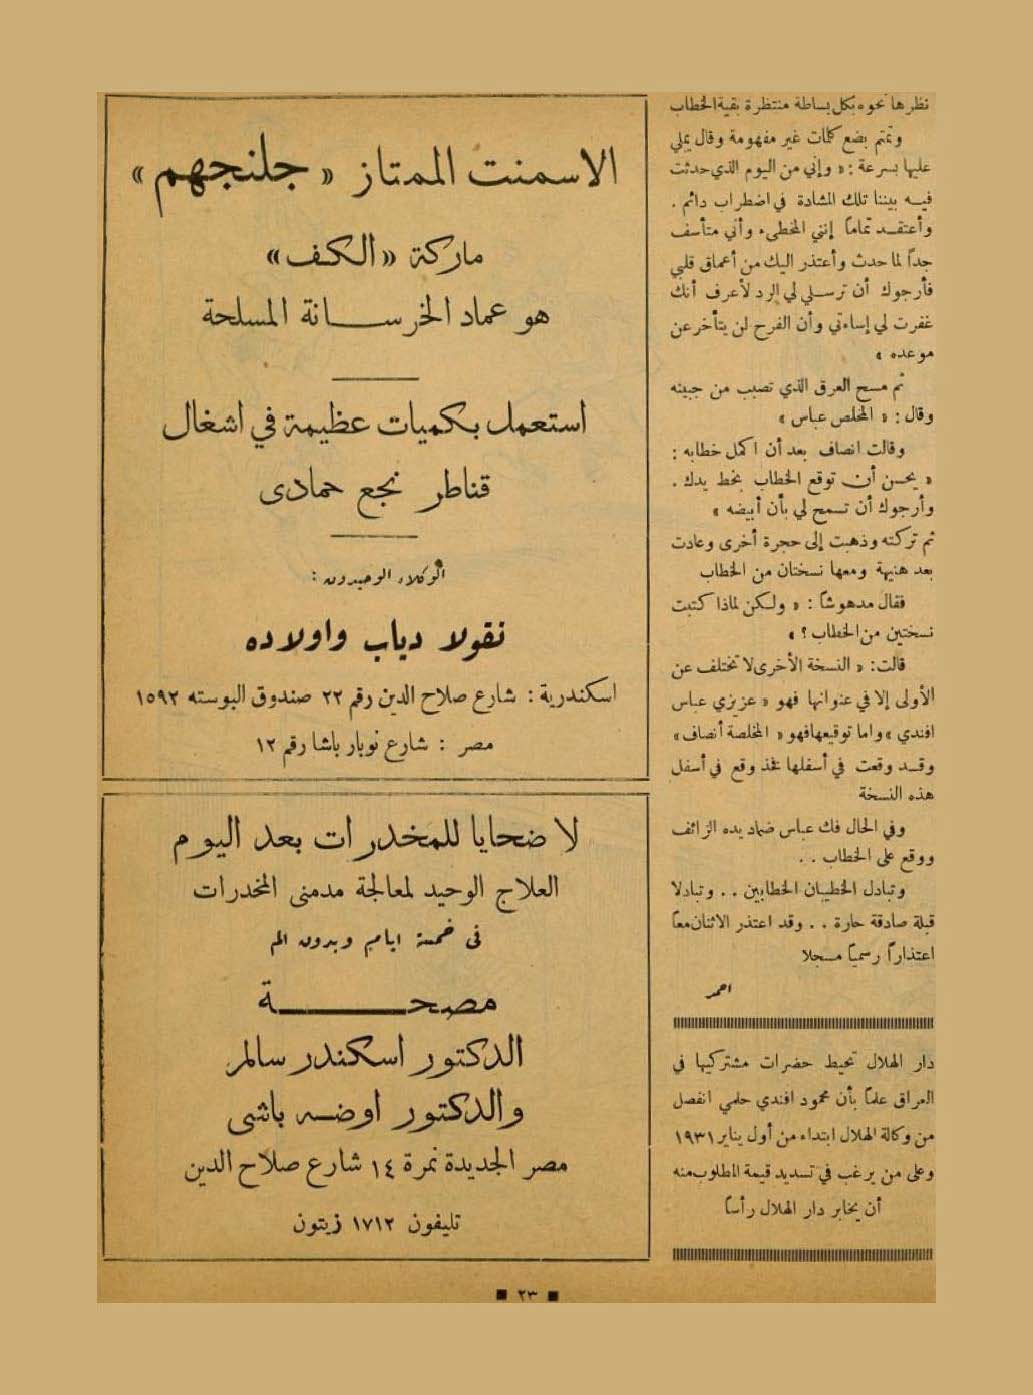 نظرها نحوه بكل بساطة منتظرة بقية الخطاب
وتمتم بضع كلمات غير مفهومة وقال يملي
عليها بسرعة : « وإني من اليوم الذي حدثت
فيه بيننا تلك المشادة في اضطراب دائم .
وأعتقد تماماً إنني المخطىء وأني متأسف
جداً لما حدث وأعتذر اليك من أعماق قلبي
فأرجوك أن ترسلي لي الرد لأعرف أنك
غفرت لي إساءتي وأن الفرح لن يتأخر عن
موعده »
ثم مسح العرق الذي تصبب من جبينه
وقال : « المخلص عباس »
وقالت انصاف بعد أن اكمل خطابه :
« يحسن أن توقع الخطاب بخط يدك .
وأرجوك أن تسمح لي بأن أبيضه »
ثم تركته وذهبت إلى حجرة أخرى وعادت
بعد هنيهة ومعها نسختان من الخطاب
فقال مدهوشاً : « ولكن لماذا كتبت
نسختين من الخطاب ؟ »
قالت : « النسخة الأخرى لا تختلف عن
الأولى إلا في عنوانها فهو « عزيزي عباس
افندي » واما توقيعها فهو « المخلصة أنصاف »
وقد وقعت في أسفلها فخذ وقع في أسفل
هذه النسخة
وفي الحال فك عباس ضماد يده الزائف
ووقع على الخطاب . .
وتبادل الخطيبان الخطابين . . وتبادلا
قبلة صادقة حارة . . وقد اعتذر الاثنان معاً
اعتذاراً رسمياً مسجلا
احمد
دار الهلال تحيط حضرات مشتركيها في
العراق علماً بأن محمود افندي حلمي انفصل
من وكالة الهلال ابتداء من أول يناير ١٩٣١
وعلى من يرغب في تسديد قيمة المطلوب منه
أن يخابر دار الهلال رأساً
الاسمنت الممتاز « جلنجهم »
ماركة « الكف »
هو عماد الخرسانة المسلحة
استعمل بكميات عظيمة في اشغال
قناطر نجع حمادى
الوكلاء الوحيدون :
نقولا دياب واولاده
اسكندرية : شارع صلاح الدين رقم ٢٢ صندوق البوسته ١٥٩٢
مصر : شارع نوبار باشا رقم ١٢
لا ضحايا للمخدرات بعد اليوم
العلاج الوحيد لمعالجة مدمنى المخدرات
فى خمسة ايام وبدون الم
مصحة
الدكتور اسكندر سالم
والدكتور اوضه باشى
مصر الجديدة نمرة ١٤ شارع صلاح الدين
تليفون ١٧١٢ زيتون
٢٣